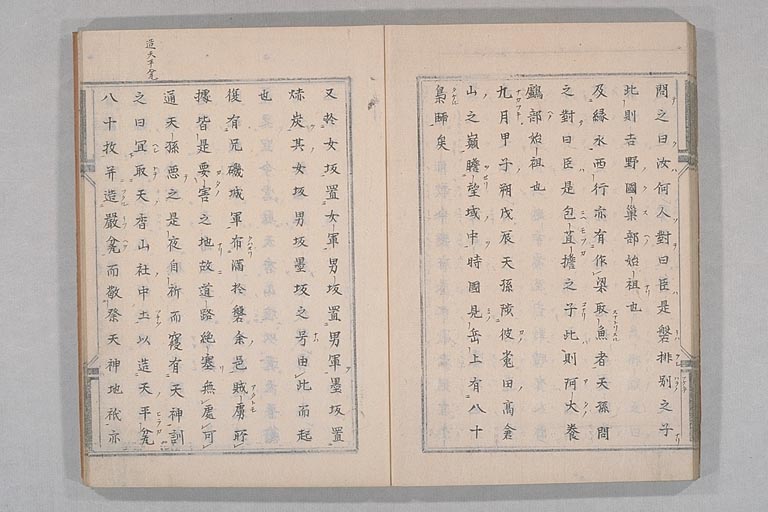 問之曰汝何人對曰臣是磐排別之子
此則吉野國巢部始祖也
及緣水西行亦有作梁取魚者天孫問
之對曰臣是包苴擔之子此則阿大養
鸕部始祖也
九月甲子朔戊辰天孫陟彼菟田高倉
山之巔瞻望域中時國見岳上有八十
梟帥矣
又於女坂置女軍男坂置男軍墨坂置
焃炭其女坂男坂墨坂之号由此而起
也
復有兄磯城軍布滿於磐余邑賊虜所
據皆是要害之地故道路絶塞無處可
通天孫惡之是夜自祈而寢有天神訓
之曰宜取天香山社中土以造天平瓮
八十枚并造嚴瓮而敬祭天神地祇亦
造天平瓮